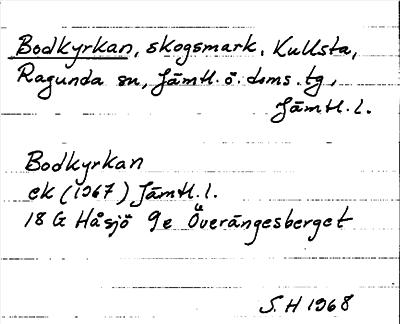 Bodkyrkan, skogsmark, Kullsta,
Ragunda sn, Jämtl. ö. doms. tg,
Jämtl. l.
Bodkyrkan
ek (1967) Jämtl. l.
18 G Håsjö 9e Överängesberget
S. H 1968